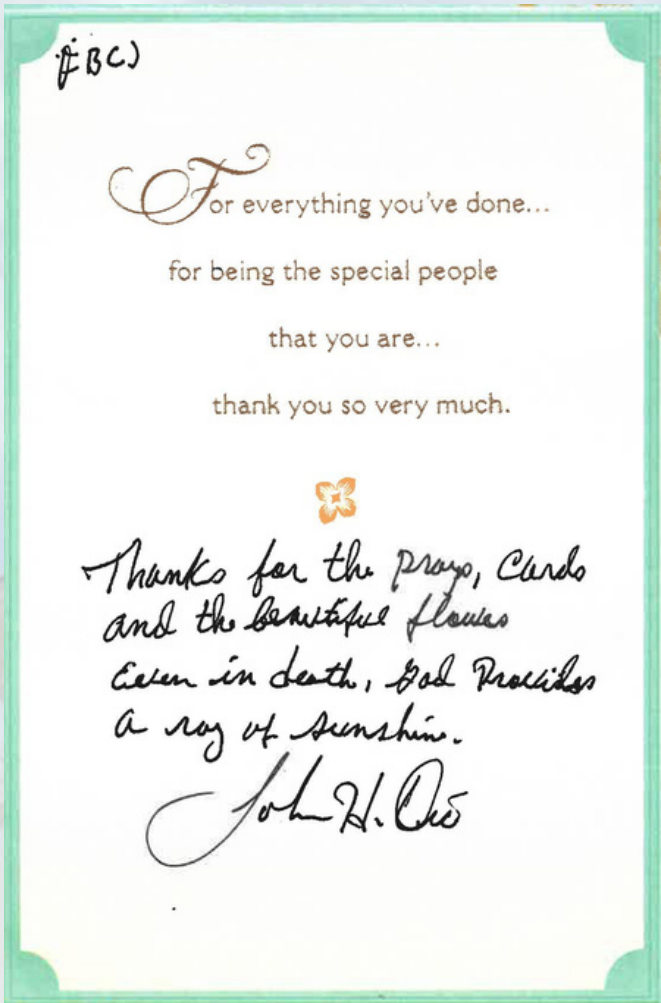 For everything you've done...
for being the special people
that you are...
thank you so very much.
Thanks for the prays, Cards
and the beautiful flowes
Even in death, God Provides
a ray of sunshine.
John H.